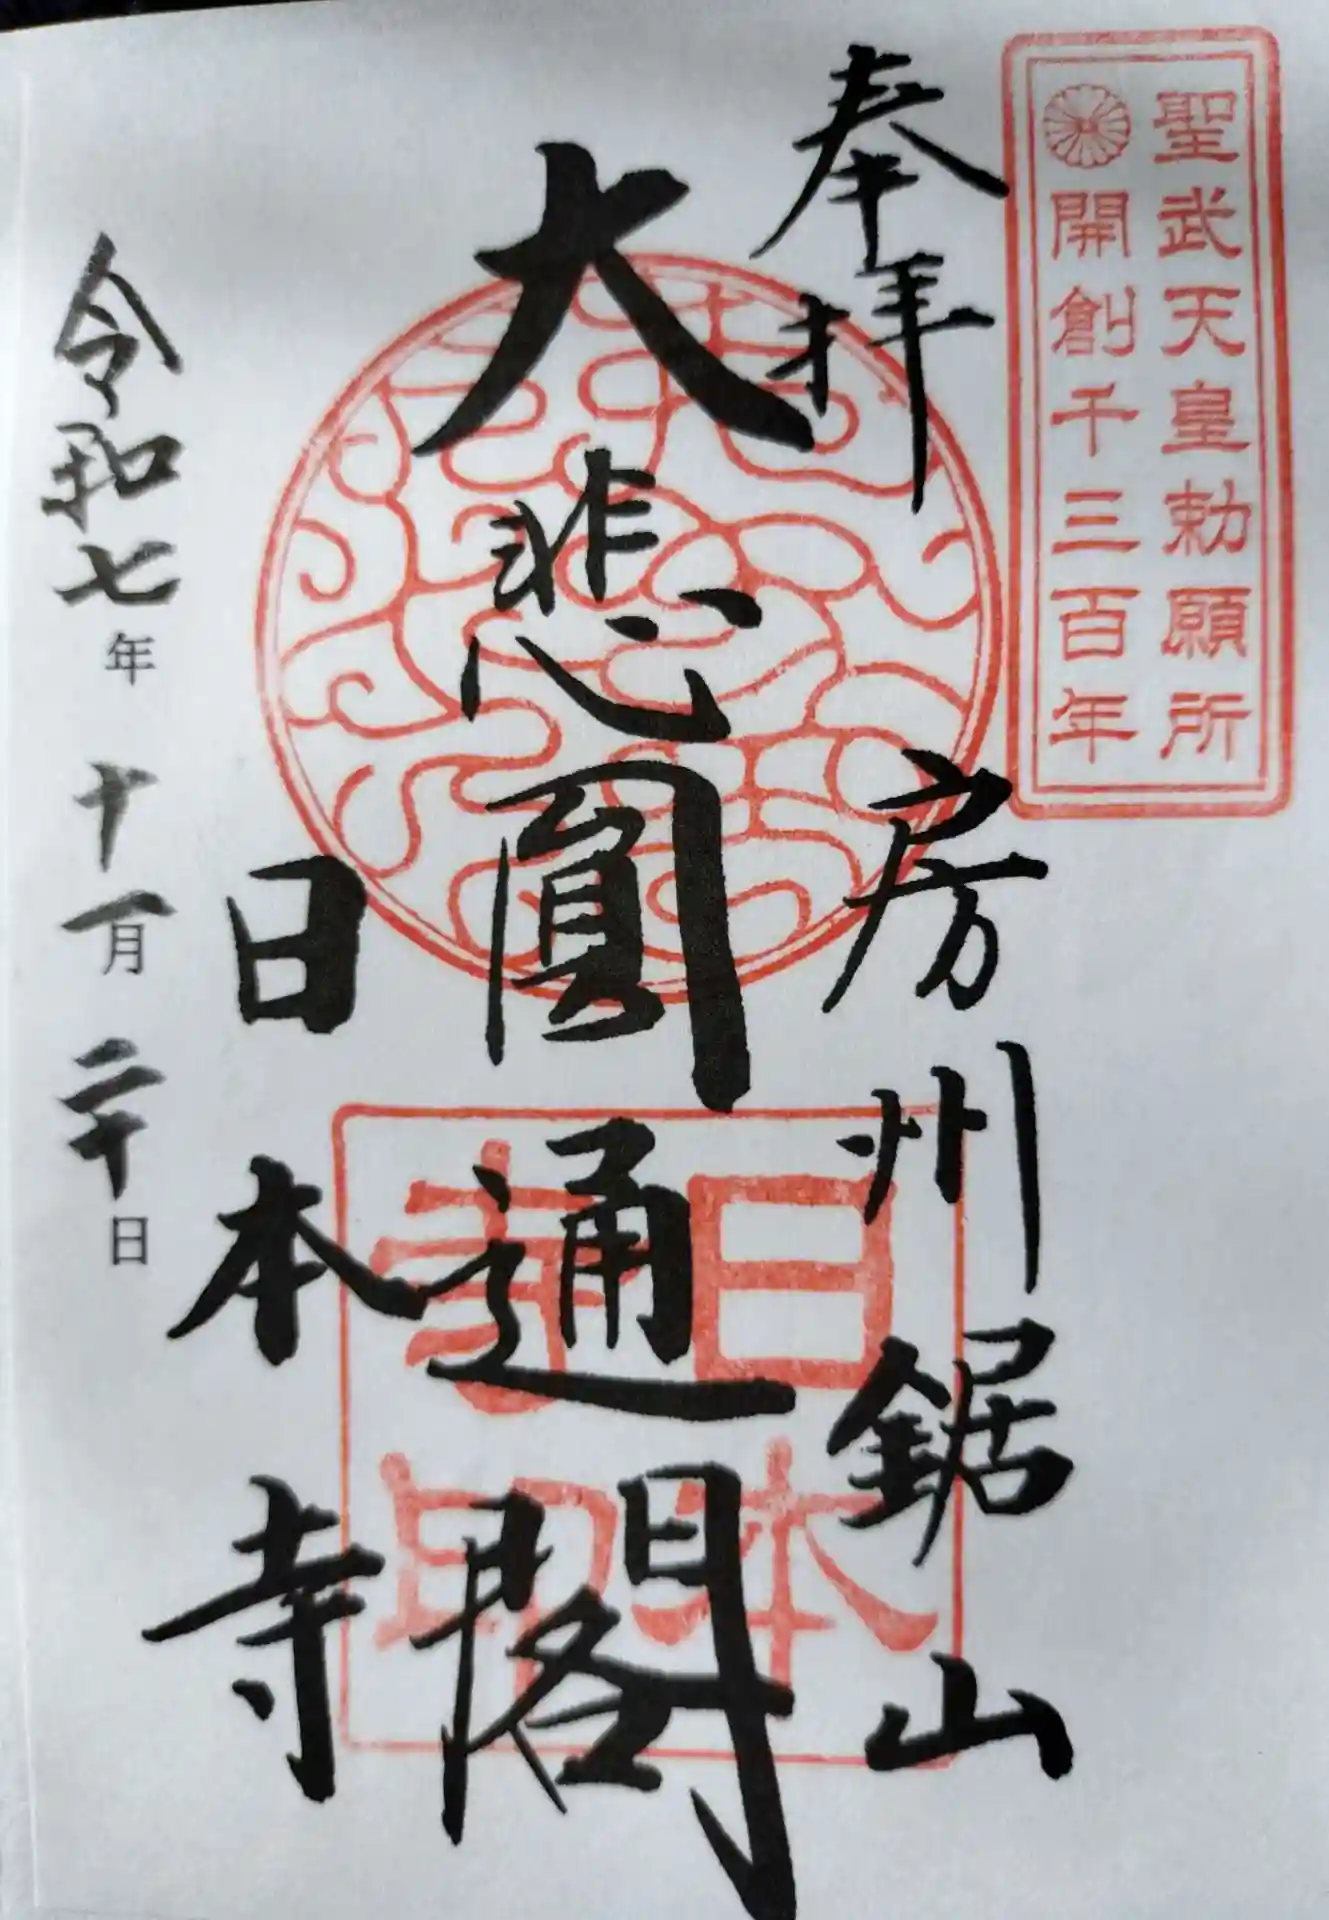 聖武天皇勅願所
開創千三百年
奉拝
房州鋸山
大悲圓通閣
日本寺印
日本寺
令和七年十一月二十日